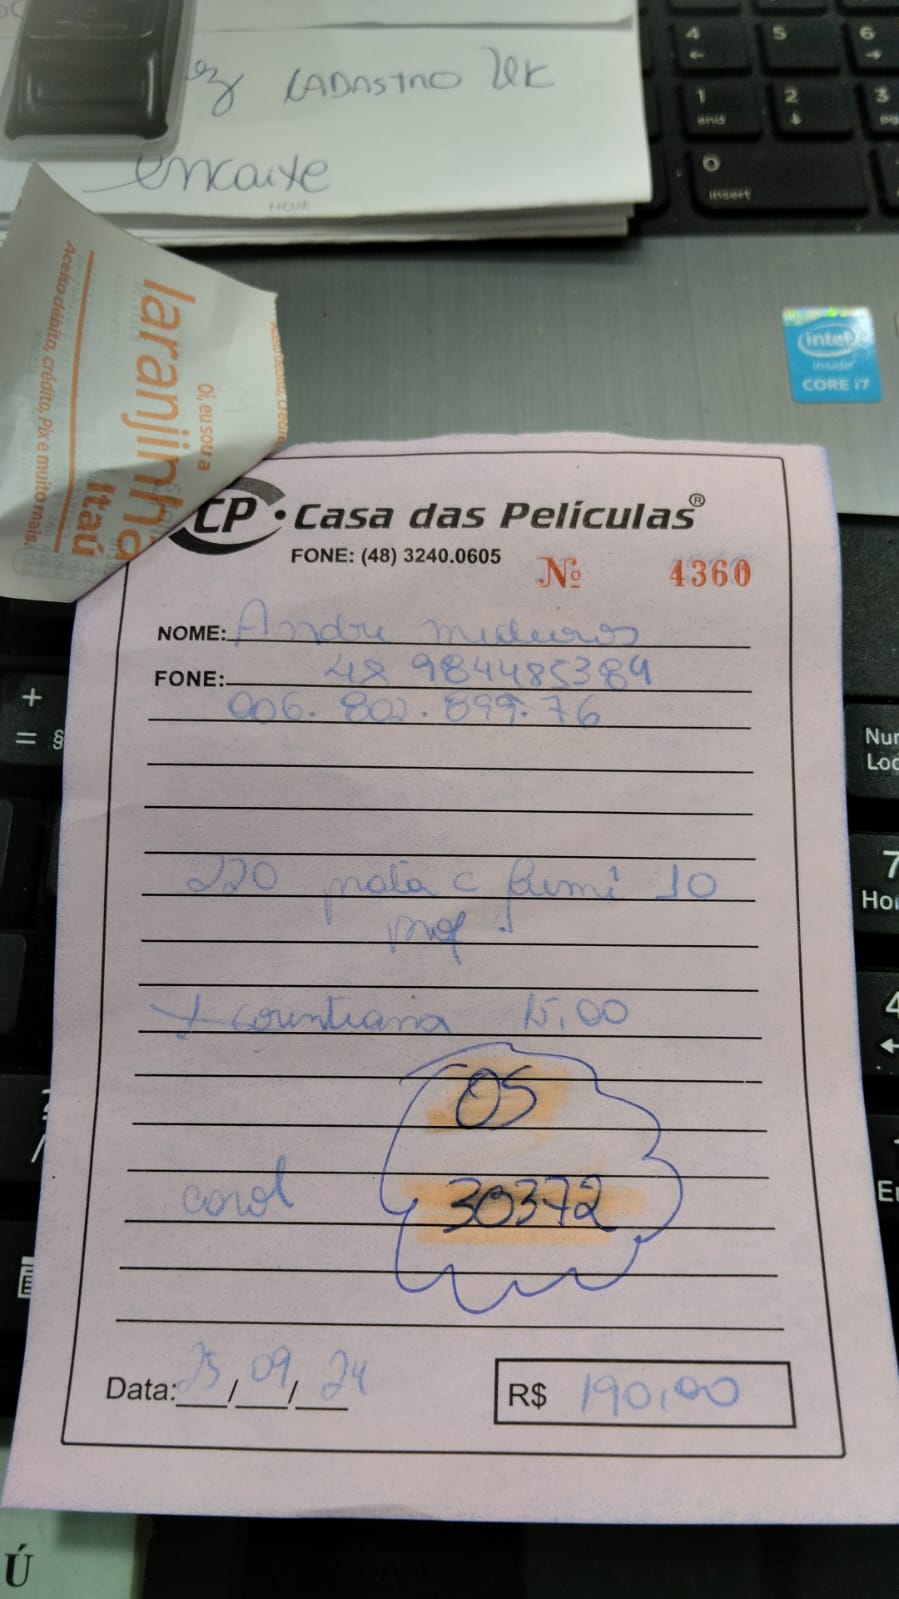 CADASTRO
encaixe
4
5
6
1
end
2
3
0
insert
intel
inside
CORE i7
Oi, eu sou a
laranjinha
Itaú
Aceito débito, crédito, Pix e muito mais.
CP · Casa das Películas®
FONE: (48) 3240.0605
Nº 4360
NOME: Andre medeiros
FONE: 48 984485384
006.802.899.76
220 prata c fumê 10
+ corintiana 15,00
OS
carol
30372
Data: 25/09/24
R$ 190,00
+
= §
Num
Loc
7
4
Ú